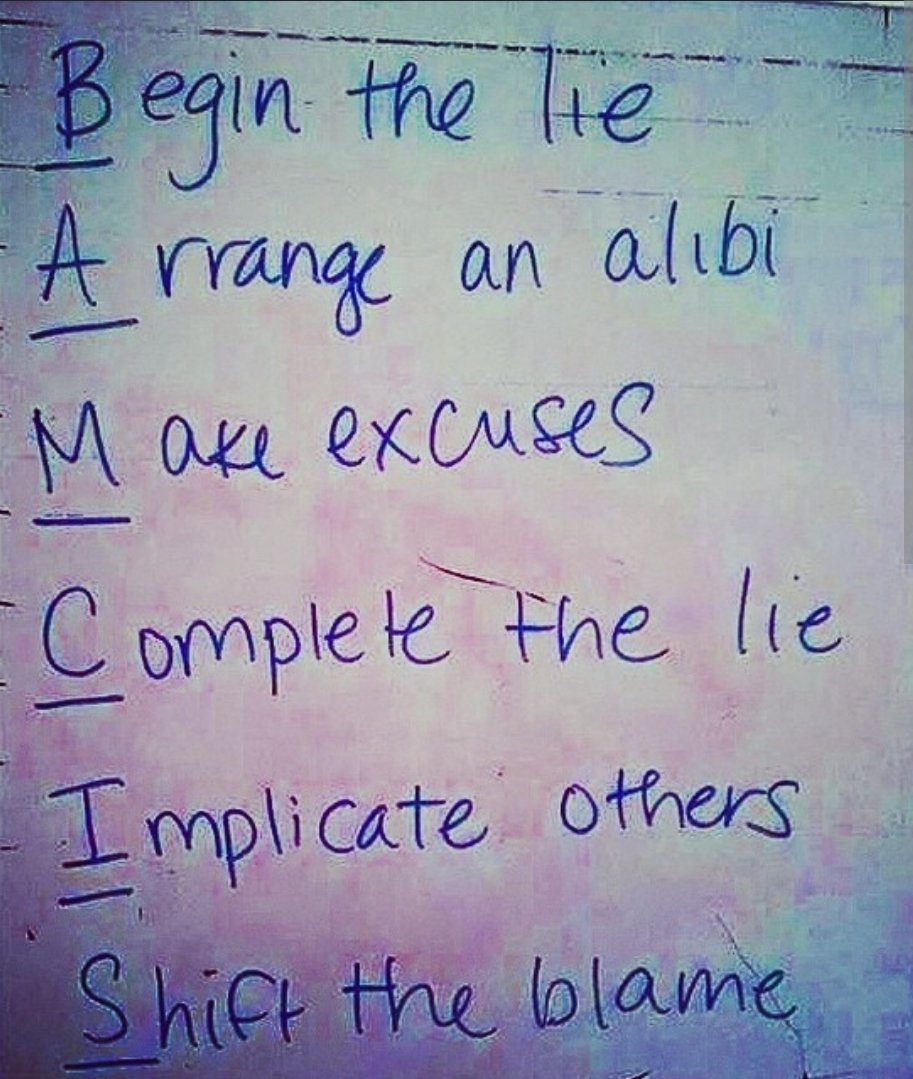 Begin the lie
Arrange an alibi
Make excuses
Complete the lie
Implicate others
Shift the blame